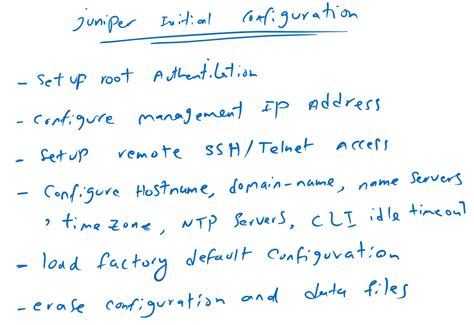 juniper Initial Configuration
- Set up root Authentication
- Configure management IP Address
- Setup remote SSH/Telnet access
- Configure Hostname, domain-name, name servers
, time zone, NTP Servers, CLI idle timeout
- load factory default Configuration
- erase configuration and data files